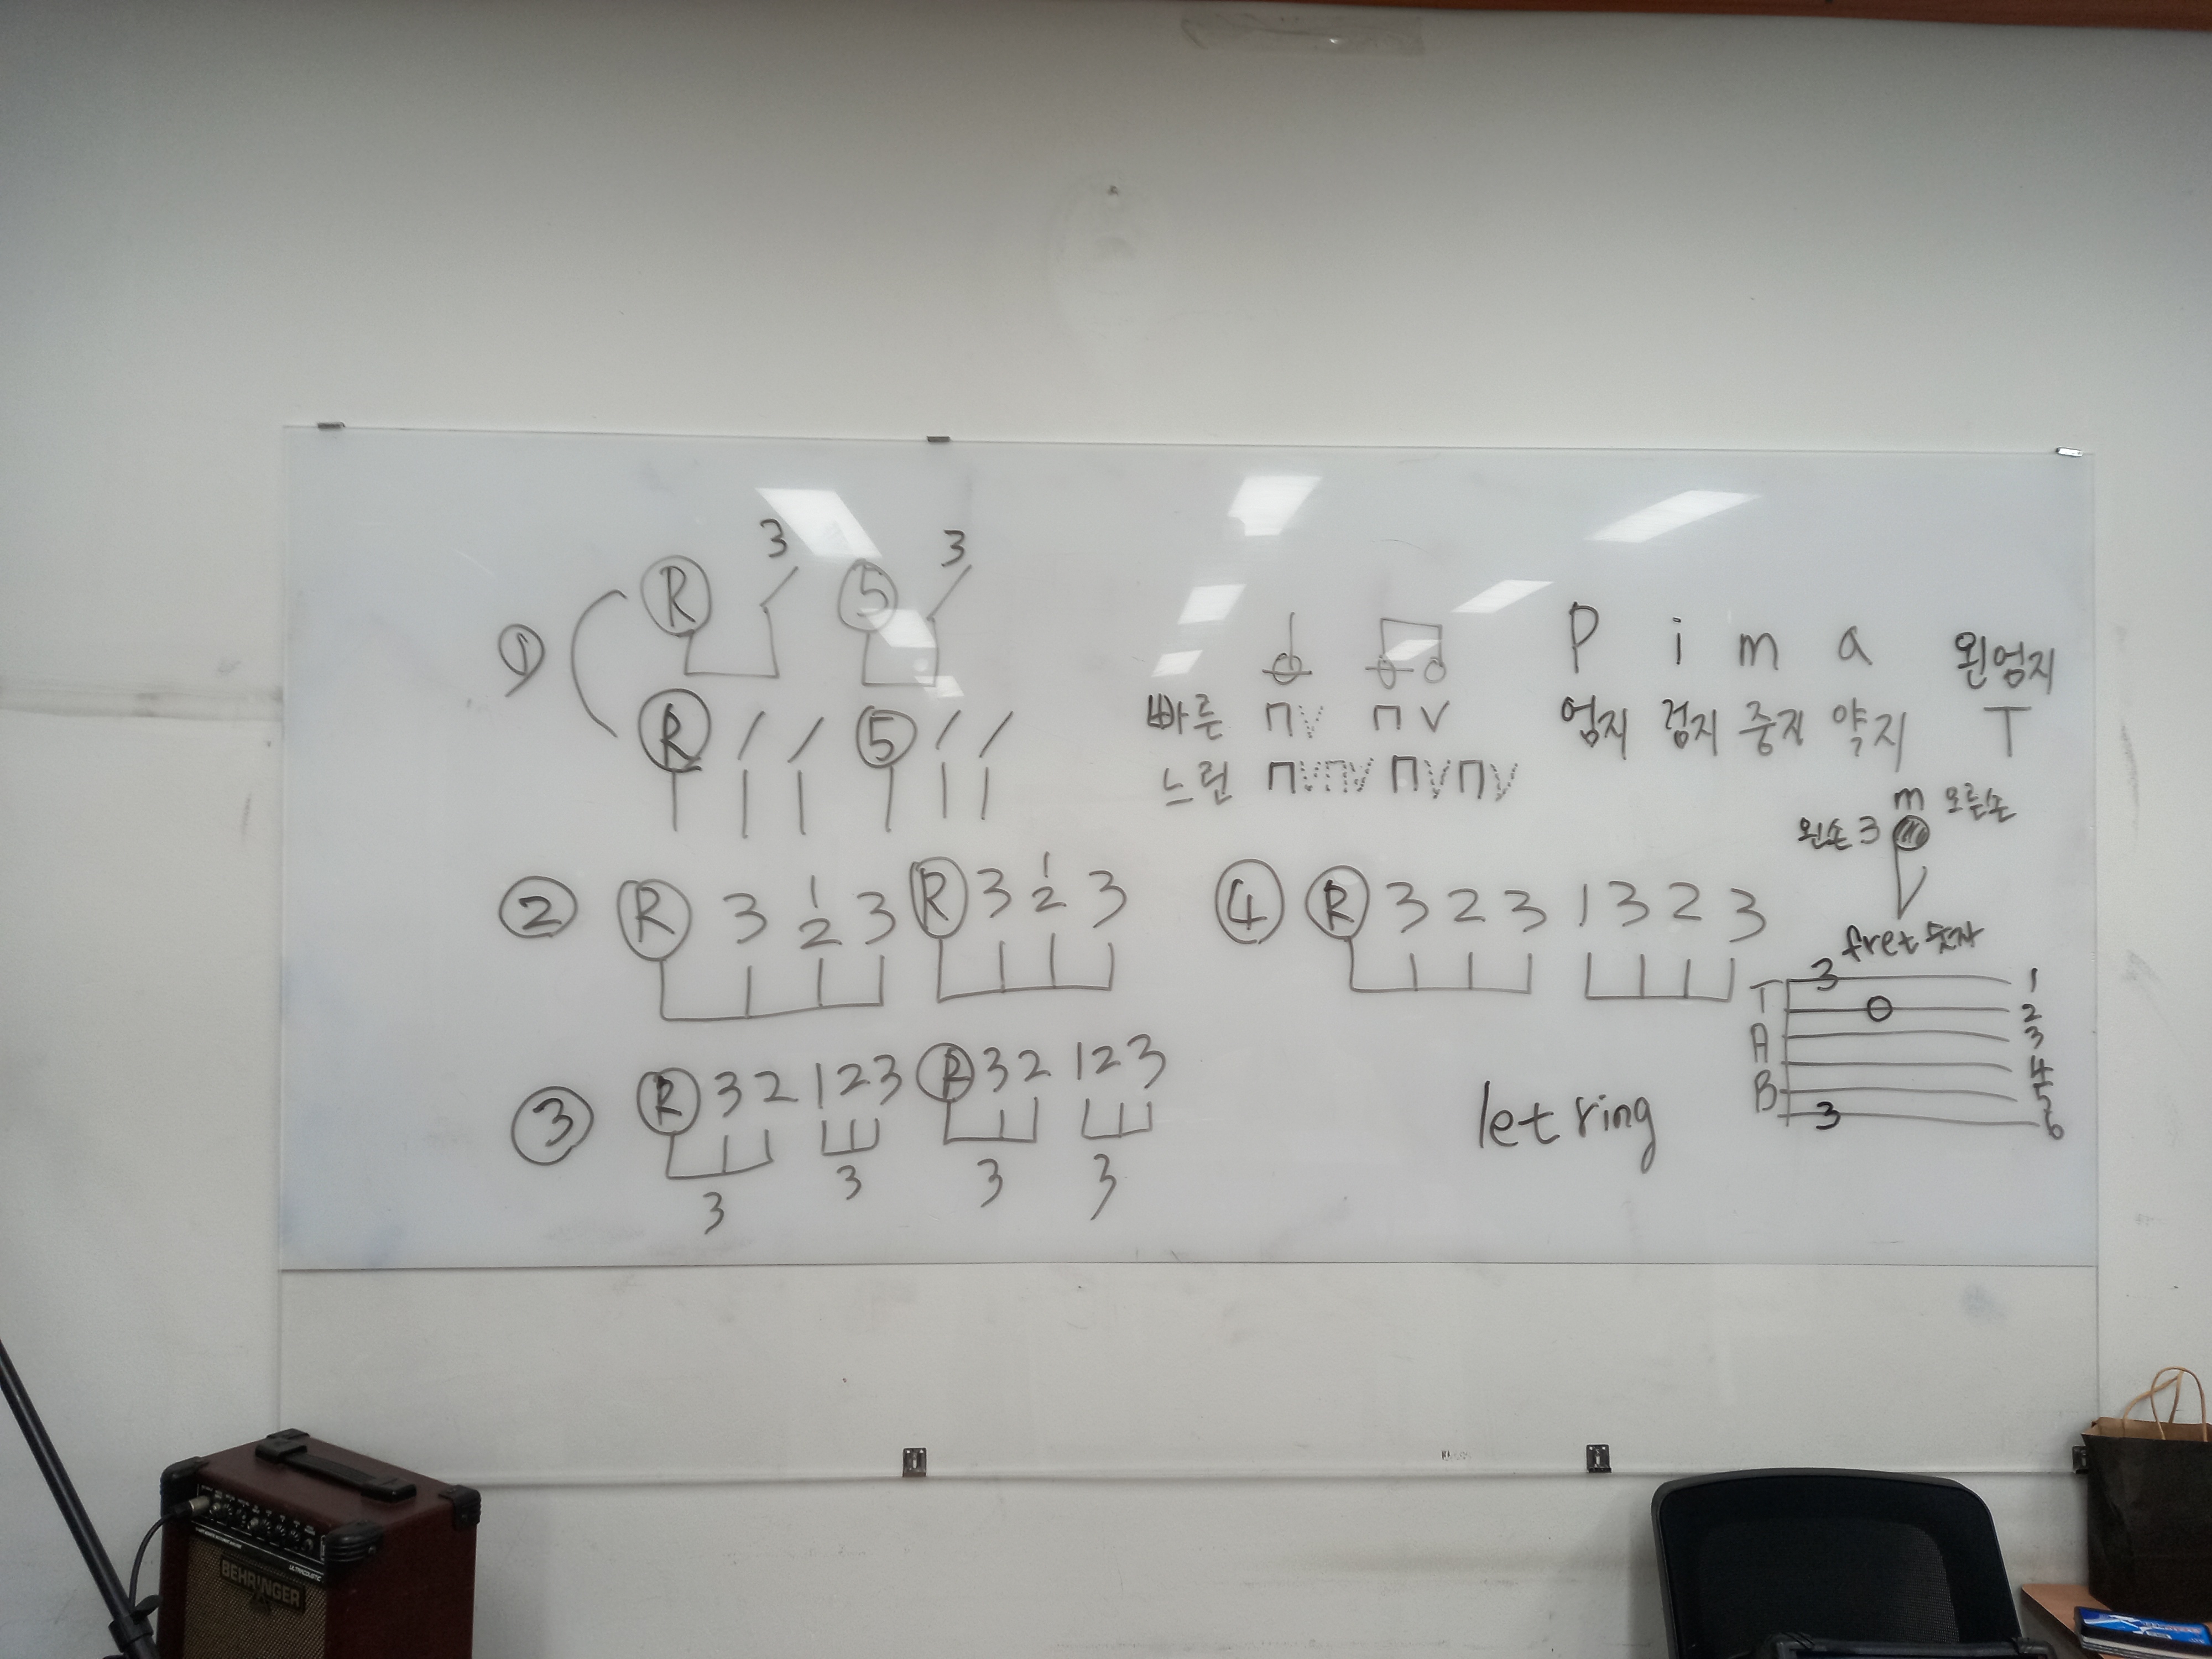 ① R 3 5 3
R / / 5 / /
빠른 ㄇV ㄇ V
느린 ㄇVㄇV ㄇVㄇV
P i m a 왼엄지
엄지 검지 중지 약지 T
m 오른손
왼손 3
② R 3 1 2 3 R 3 1 2 3
④ R 3 2 3 1 3 2 3
fret 숫자
3 1
T 0 2
A 3
4
B 5
3 6
③ R 3 2 1 2 3 R 3 2 1 2 3
3 3 3 3
let ring
BEHRINGER